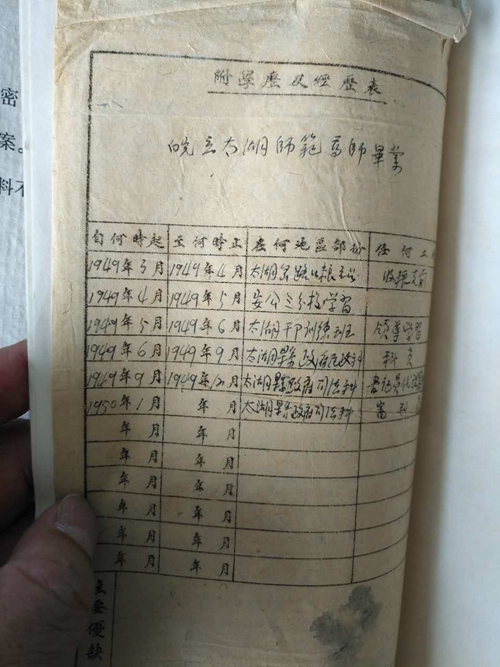 密
案。
料不
附學歷及經歷表
皖立太湖師範高師畢業
自何時起 至何時止 在何地區部份 任何工
1949年3月 1949年4月 太湖
1949年4月 1949年5月 安公三分校学習
1949年5月 1949年6月 太湖干部訓練班 領導学習
1949年6月 1949年9月 太湖縣政府民政科 科員
1949年9月 1949年12月 太湖縣政府司法科
1950年1月 年 月 太湖縣政府司法科 審判
年 月 年 月
年 月 年 月
年 月 年 月
年 月 年 月
年 月 年 月
年 月 年 月
主要優缺